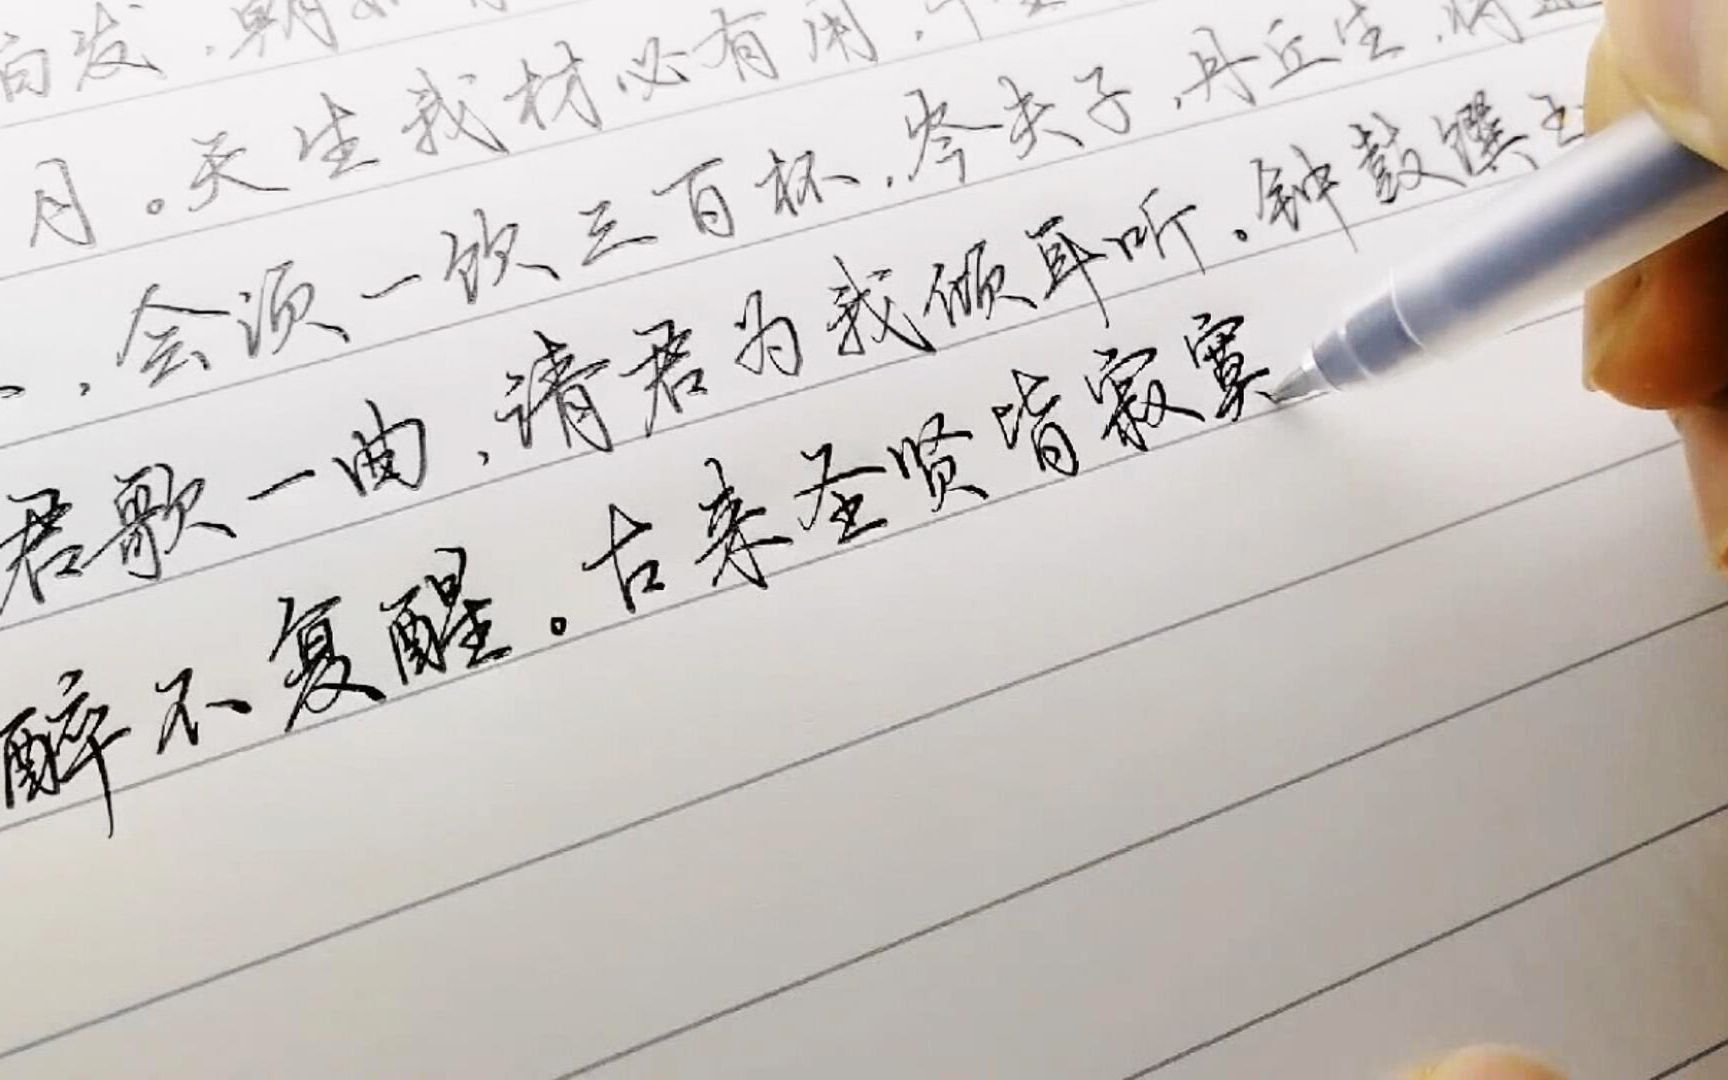 白发，朝如
月。天生我材必有用，千金
，会须一饮三百杯，岑夫子，丹丘生，将进
君歌一曲，请君为我倾耳听。钟鼓馔玉
醉不复醒。古来圣贤皆寂寞